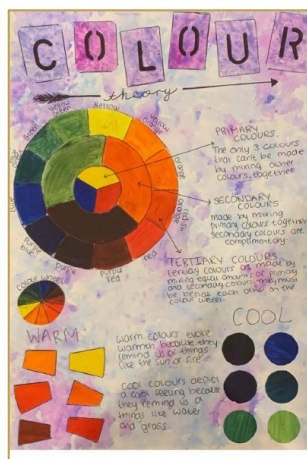 COLOUR
theory
yellow
yellow orange
orange
orange red
red
purple red
purple
blue
yellow green
green
PRIMARY
COLOURS.
The only 3 colours
that can't be made
by mixing other
colours together
SECONDARY
COLOURS
made by mixing
primary colours together
secondary colours are
complimentary.
TERTIARY COLOURS
tertiary colours are made by
mixing equal amounts of primary
and secondary colours. They must
be beside each other on the
colour wheel.
COLOUR WHEEL
WARM
warm colours evoke
warmth because they
remind us of things
like the sun or fire
COOL
cool colours depict
a cool feeling because
they remind us of
things like water
and grass.